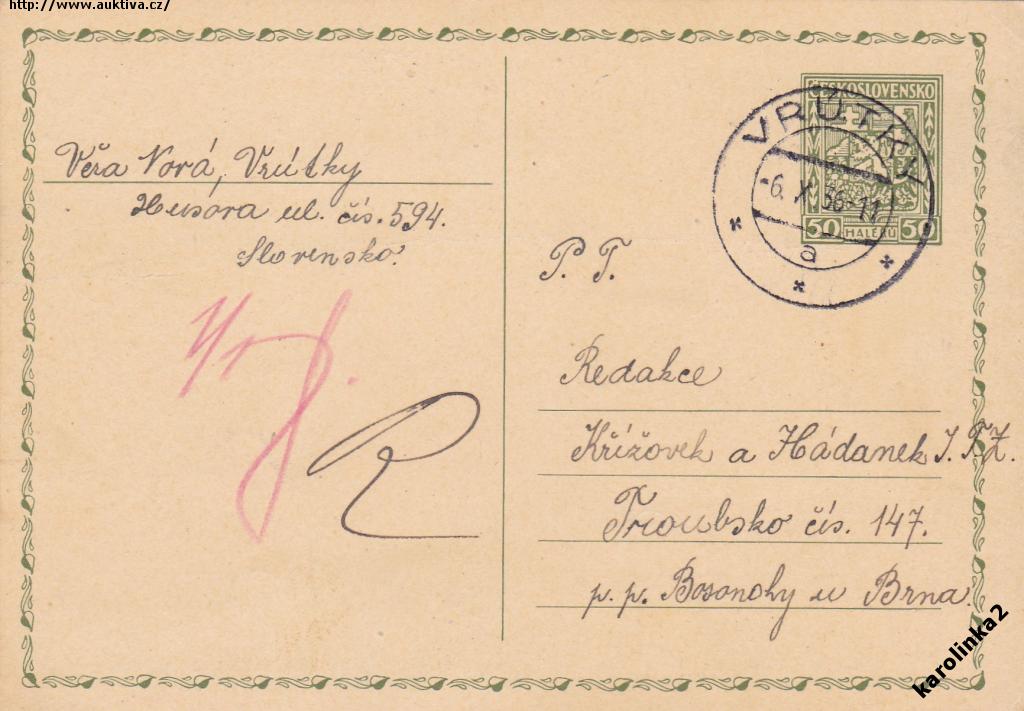 http://www.auktiva.cz/
ČESKOSLOVENSKO
50 HALÉŘŮ 50
VRÚTKY
-6. X. 36-11
a
Věra Nová, Vrútky
Husova ul. čís. 594.
Slovensko.
P. T.
Redakce
Křížovek a Hádanek J. T. Z.
Troubsko čís. 147.
p. p. Bosonohy u Brna.
R
karolinka2